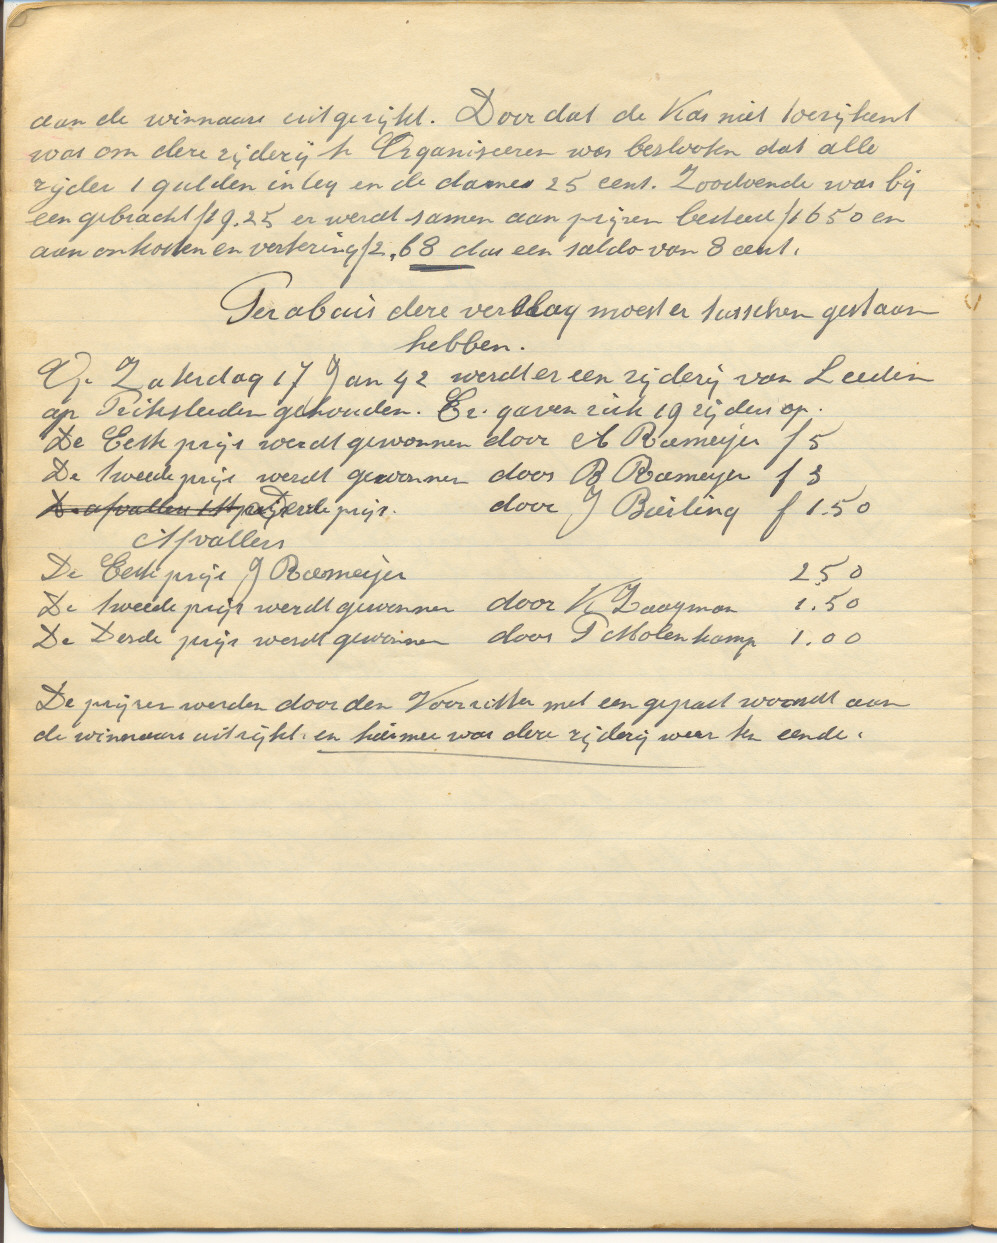 aan de winnaars uitgerijkt. Door dat de Kas niet toerijkent
was om dere rijderij te Organiseeren was besloten dat alle
rijder 1 gulden inleg en de dames 25 cent. Zoodoende was bij
een gebracht f19.25 er werdt samen aan prijzen besteed f16 50 en
aan onkosten en vertering f2,68 dus een saldo van 8 cent.
Per abuis dere verslag moest er tusschen gestaan
hebben.
Op Zaterdag 17 Jan 42 werdt er een rijderij van Leeden
op Priksleeden gehouden. Er gaven zich 19 rijders op.
De Eerste prijs werdt gewonnen door A Roemeijer f 5
De tweede prijs werdt gewonnen door B Roemeijer f 3
Derde prijs. door J Buisling f 1.50
Afvallers
De Eerste prijs J Roemeijer 2.50
De tweede prijs werdt gewonnen door K Zaayman 1.50
De Derde prijs werdt gewonnen door P Molenkamp 1.00
De prijzen werden door den Voorzitter met een gepast woordt aan
de winnaars uitrijkt. en hiermee was dere rijderij weer ten eende.